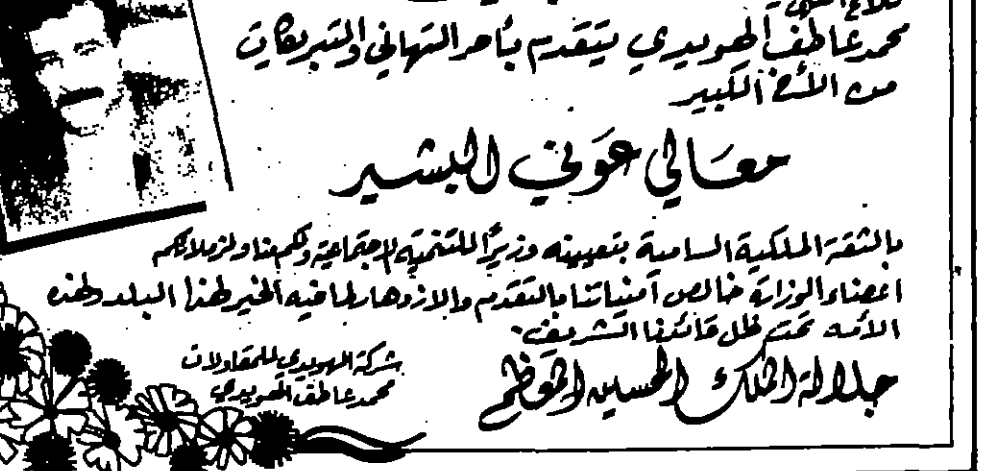 محمد عاطف الهويدي يتقدم بأحر التهاني والتبريكات
من الأخ الكبير
معالي عوني البشير
بالثقة الملكية السامية بتعيينه وزيرًا للتنمية الاجتماعية ولكم منا ولزملائكم
اعضاء الوزارة خالص أمنياتنا بالتقدم والازدهار لما فيه الخير لهذا البلد ولهذه
الأمه تحت ظل قائدنا الشريف.
جلالة الملك الحسين المعظم
شركة الهويدي للمقاولات
محمد عاطف الهويدي